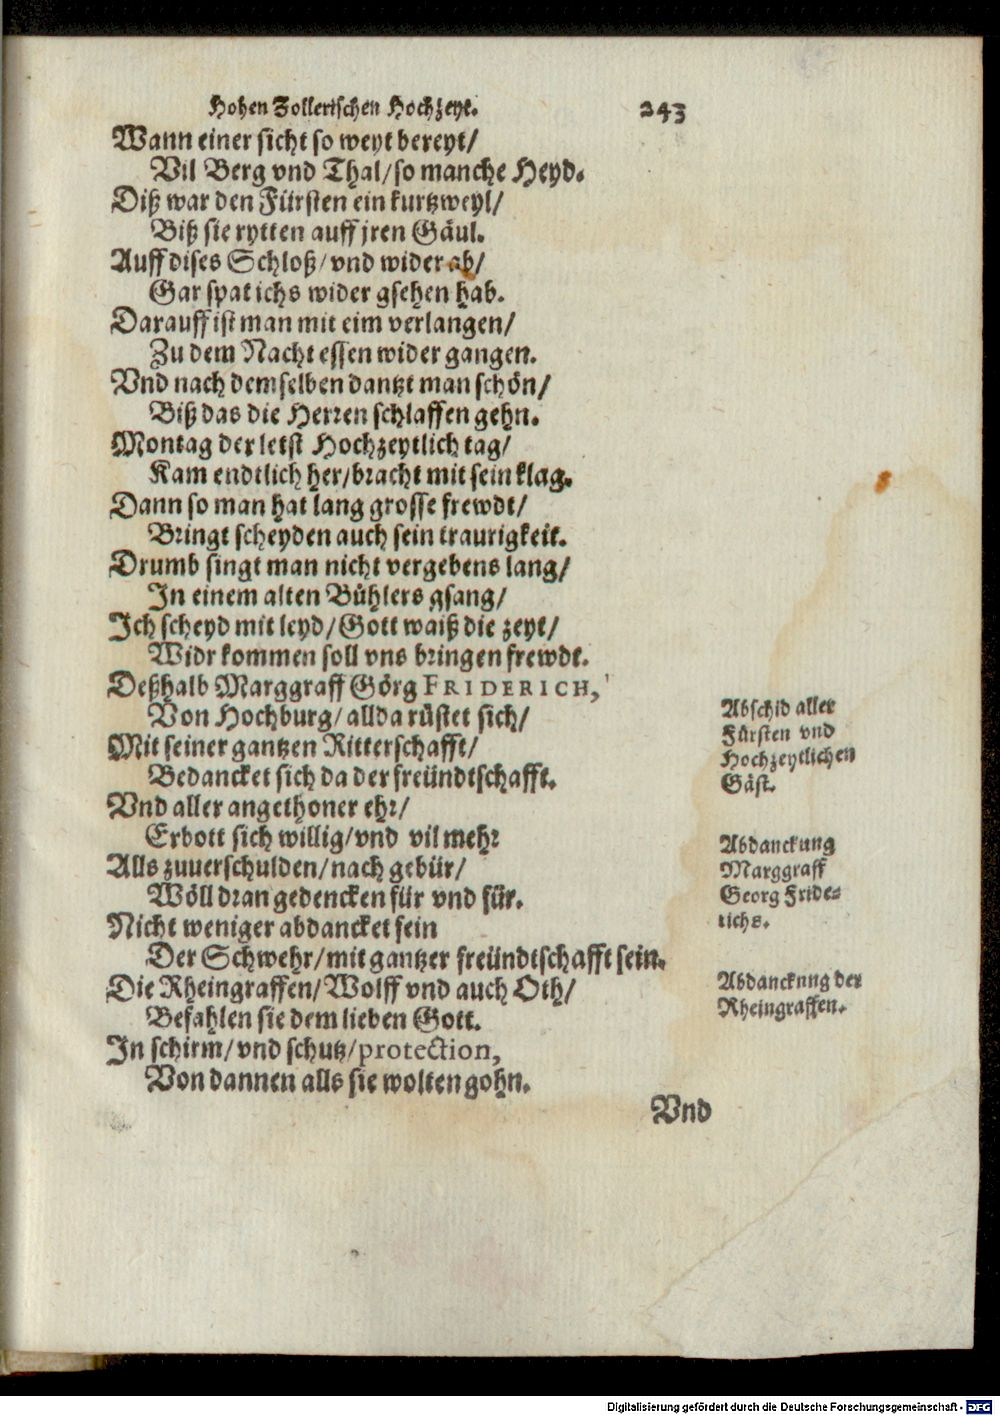 Hohen Zollerischen Hochzeyt. 243
Wann einer sicht so weyt bereyt/
Vil Berg vnd Thal/so manche Heyd.
Diß war den Fürsten ein kurtzweyl/
Biß sie rytten auff jren Gäul.
Auff dises Schloß/vnd wider ab/
Gar spat ichs wider gsehen hab.
Darauff ist man mit eim verlangen/
Zu dem Nacht essen wider gangen.
Vnd nach demselben dantzt man schön/
Biß das die Herren schlaffen gehn.
Montag der letst Hochzeytlich tag/
Kam endtlich her/bracht mit sein klag.
Dann so man hat lang grosse frewdt/
Bringt scheyden auch sein traurigkeit.
Drumb singt man nicht vergebens lang/
In einem alten Bůhlers gsang/
Ich scheyd mit leyd/Gott waiß die zeyt/
Widr kommen soll vns bringen frewdt.
Deßhalb Marggraff Görg FRIDERICH,
Von Hochburg/allda rüstet sich/
Mit seiner gantzen Ritterschafft/
Bedancket sich da der freündtschafft.
Vnd aller angethoner ehr/
Erbott sich willig/vnd vil mehr
Alls zuuerschulden/nach gebür/
Wöll dran gedencken für vnd für.
Nicht weniger abdancket sein
Der Schwehr/mit gantzer freündtschafft sein.
Die Rheingraffen/Wolff vnd auch Oth/
Befahlen sie dem lieben Gott.
In schirm/vnd schutz/protection,
Von dannen alls sie wolten gohn.
Vnd
Abschid aller
Fürsten vnd
Hochzeytlichen
Gäst.
Abdanckung
Marggraff
Georg Fride=
richs.
Abdancknng der
Rheingraffen.
Digitalisierung gefördert durch die Deutsche Forschungsgemeinschaft - DFG